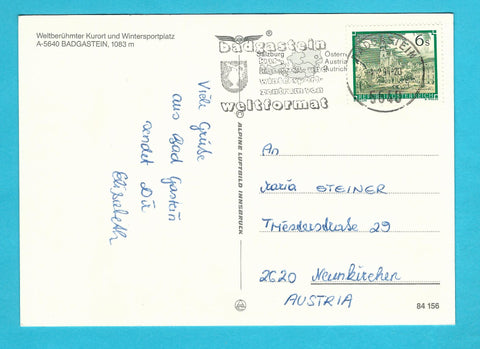 Weltberühmter Kurort und Wintersportplatz
A-5640 BADGASTEIN, 1083 m
Viele Grüße
aus Bad Gastein
sendet Dir
Elisabeth
® ALPINE LUFTBILD INNSBRUCK
badgastein
Salzburg
Österreich
Austria
Autriche
kur-
wintersport-
zentrum von
weltformat
6 S
REPUBLIK ÖSTERREICH
BADGASTEIN
5640
An
Maria STEINER
Triesterstraße 29
2620 Neunkirchen
AUSTRIA
84 156